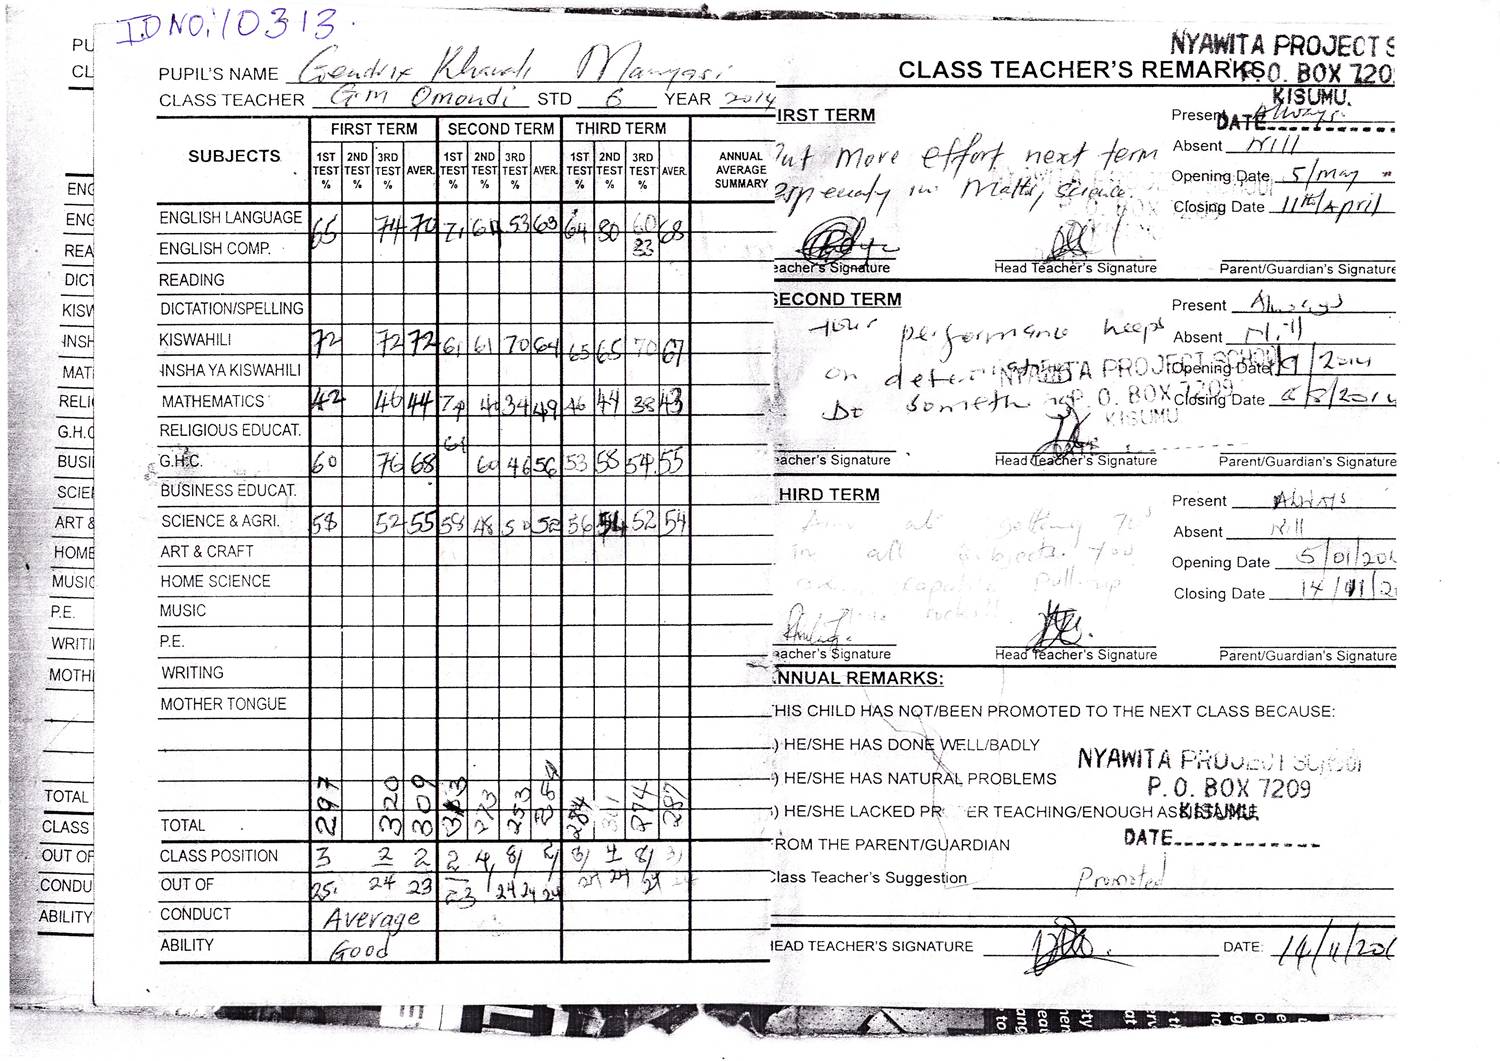 I.D NO: 10313.
NYAWITA PROJECT S
P.O. BOX 7209
KISUMU.
DATE
PUPIL'S NAME Manyasi
CLASS TEACHER G.M Omondi STD 6 YEAR 2014
SUBJECTS FIRST TERM SECOND TERM THIRD TERM ANNUAL AVERAGE SUMMARY
1ST TEST % 2ND TEST % 3RD TEST % AVER. 1ST TEST % 2ND TEST % 3RD TEST % AVER. 1ST TEST % 2ND TEST % 3RD TEST % AVER.
ENGLISH LANGUAGE 65 74 70 71 61 53 63 64 80 60 68
ENGLISH COMP. 33
READING
DICTATION/SPELLING
KISWAHILI 72 72 72 61 61 70 64 65 65 70 67
INSHA YA KISWAHILI
MATHEMATICS 42 46 44 74 40 34 49 46 44 38 43
RELIGIOUS EDUCAT.
G.H.C. 60 76 68 61 60 46 56 53 58 54 55
BUSINESS EDUCAT.
SCIENCE & AGRI. 58 52 55 58 48 50 52 56 54 52 54
ART & CRAFT
HOME SCIENCE
MUSIC
P.E.
WRITING
MOTHER TONGUE
TOTAL 297 320 309 273 253 284 274 287
CLASS POSITION 3 2 2 2 4 8 2 3 4 8 3
OUT OF 25 24 23 23 24 24 24 24 24
CONDUCT Average
ABILITY Good
CLASS TEACHER'S REMARKS
IRST TERM
Put more effort next term
especially in Maths, science
Present Always
Absent Nill
Opening Date 5/May
Closing Date 11th/April
eacher's Signature Head Teacher's Signature Parent/Guardian's Signature
SECOND TERM
Your performance keeps
on
Do
Present Always
Absent Nill
NYAWITA PROJECT SCHOOL
P. O. BOX 7209
KISUMU
Opening Date
Closing Date 6/8/2014
eacher's Signature Head Teacher's Signature Parent/Guardian's Signature
HIRD TERM
Aim at getting 70s
in all subjects. You
are capable Pull-up
Present Always
Absent Nill
Opening Date 5/01/201
Closing Date 14/11/2
eacher's Signature Head Teacher's Signature Parent/Guardian's Signature
NNUAL REMARKS:
HIS CHILD HAS NOT/BEEN PROMOTED TO THE NEXT CLASS BECAUSE:
) HE/SHE HAS DONE WELL/BADLY
) HE/SHE HAS NATURAL PROBLEMS
) HE/SHE LACKED PR ER TEACHING/ENOUGH ASSISTANCE
ROM THE PARENT/GUARDIAN
NYAWITA PROJECT SCHOOL
P.O. BOX 7209
KISUMU.
DATE
Class Teacher's Suggestion Promoted
EAD TEACHER'S SIGNATURE DATE: 14/11/201
PU
CL
ENG
ENG
REA
DICT
KISW
INSH
MAT
RELI
G.H.C
BUSI
SCIE
ART &
HOME
MUSIC
P.E.
WRITI
MOTH
TOTAL
CLASS
OUT OF
CONDU
ABILITY